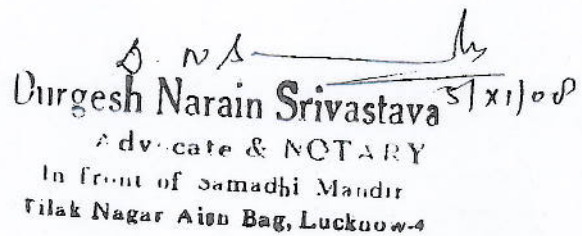 D. N S
Durgesh Narain Srivastava 5/XI/08
Advocate & NOTARY
In front of Samadhi Mandir
Tilak Nagar Aish Bag, Lucknow-4